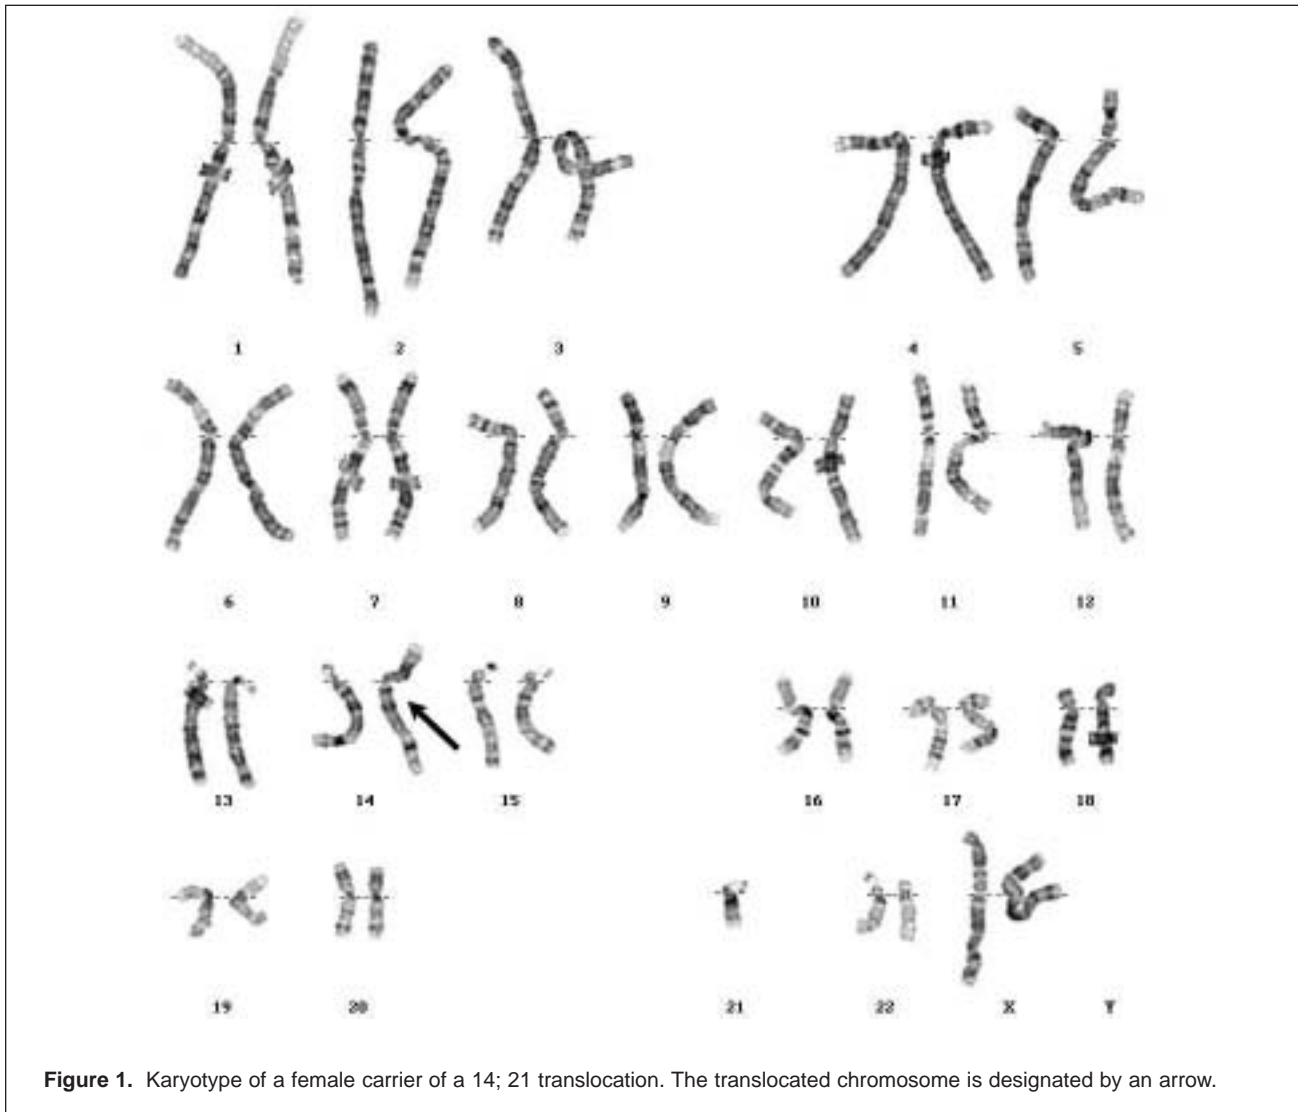 1 2 3 4 5
6 7 8 9 10 11 12
13 14 15 16 17 18
19 20 21 22 X Y
Figure 1. Karyotype of a female carrier of a 14; 21 translocation. The translocated chromosome is designated by an arrow.